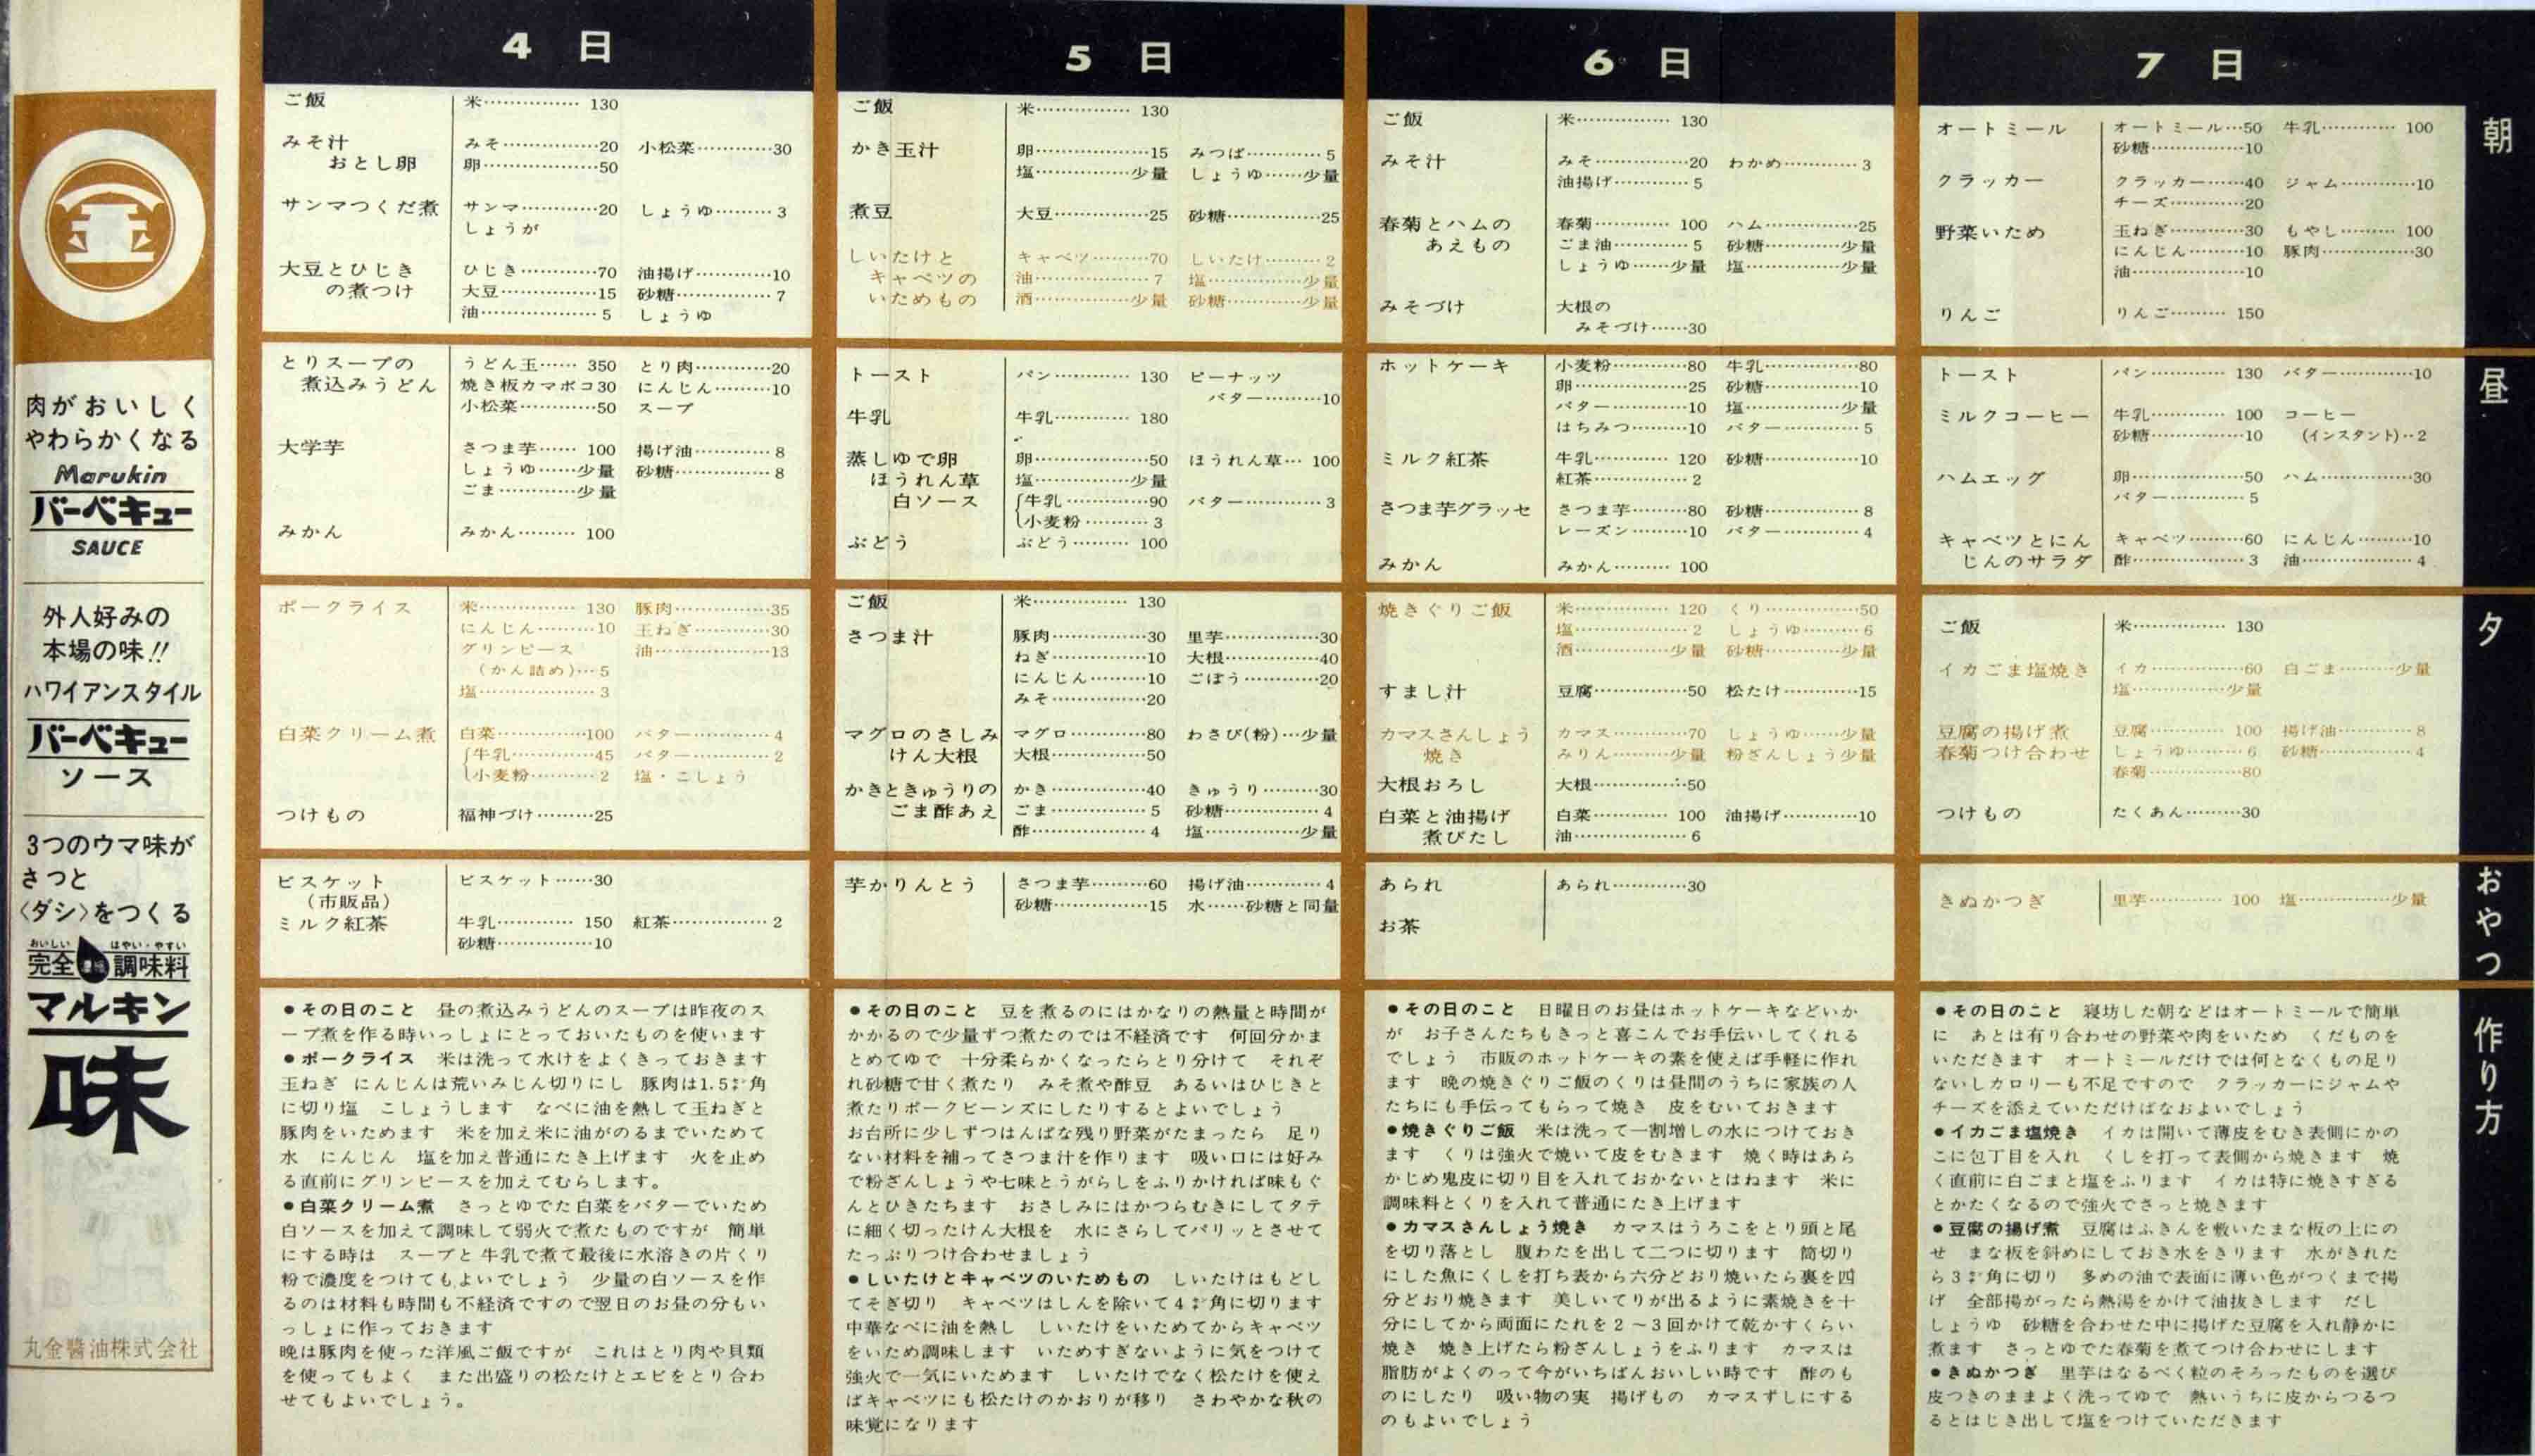 肉がおいしく
やわらかくなる
Marukin
バーベキュー
SAUCE
外人好みの
本場の味!!
ハワイアンスタイル
バーベキュー
ソース
3つのウマ味が
さつと
〈ダシ〉をつくる
おいしい はやい・やすい
完全 調味料
マルキン
味
丸金醬油株式会社
4 日
ご飯 米……………130
みそ汁 みそ……………20 小松菜…………30
おとし卵 卵……………50
サンマつくだ煮 サンマ…………20 しょうゆ………3
しょうが
大豆とひじき ひじき…………70 油揚げ…………10
の煮つけ 大豆……………15 砂糖……………7
油………………5 しょうゆ
とりスープの うどん玉……350 とり肉…………20
煮込みうどん 焼き板カマボコ30 にんじん………10
小松菜…………50 スープ
大学芋 さつま芋……100 揚げ油…………8
しょうゆ……少量 砂糖……………8
ごま…………少量
みかん みかん………100
ポークライス 米……………130 豚肉……………35
にんじん………10 玉ねぎ…………30
グリンピース 油………………13
(かん詰め)…5
塩………………3
白菜クリーム煮 白菜…………100 バター…………4
牛乳……………45 バター…………2
小麦粉…………2 塩・こしょう
つけもの 福神づけ………25
ビスケット ビスケット……30
(市販品)
ミルク紅茶 牛乳…………150 紅茶……………2
砂糖……………10
●その日のこと 昼の煮込みうどんのスープは昨夜のス
ープ煮を作る時いっしょにとっておいたものを使います
●ポークライス 米は洗って水けをよくきっておきます
玉ねぎ にんじんは荒いみじん切りにし 豚肉は1.5㌢角
に切り塩 こしょうします なべに油を熱して玉ねぎと
豚肉をいためます 米を加え米に油がのるまでいためて
水 にんじん 塩を加え普通にたき上げます 火を止め
る直前にグリンピースを加えてむらします。
●白菜クリーム煮 さっとゆでた白菜をバターでいため
白ソースを加えて調味して弱火で煮たものですが 簡単
にする時は スープと牛乳で煮て最後に水溶きの片くり
粉で濃度をつけてもよいでしょう 少量の白ソースを作
るのは材料も時間も不経済ですので翌日のお昼の分もい
っしょに作っておきます
晩は豚肉を使った洋風ご飯ですが これはとり肉や貝類
を使ってもよく また出盛りの松たけとエビをとり合わ
せてもよいでしょう。
5 日
ご飯 米……………130
かき玉汁 卵………………15 みつば…………5
塩……………少量 しょうゆ……少量
煮豆 大豆……………25 砂糖……………25
しいたけと キャベツ………70 しいたけ………2
キャベツの 油………………7 塩……………少量
いためもの 酒……………少量 砂糖…………少量
トースト パン…………130 ピーナッツ
バター…………10
牛乳 牛乳…………180
蒸しゆで卵 卵………………50 ほうれん草…100
ほうれん草 塩……………少量
白ソース 牛乳……………90 バター…………3
小麦粉…………3
ぶどう ぶどう………100
ご飯 米……………130
さつま汁 豚肉……………30 里芋……………30
ねぎ……………10 大根……………40
にんじん………10 ごぼう…………20
みそ……………20
マグロのさしみ マグロ…………80 わさび(粉)…少量
けん大根 大根……………50
かきときゅうりの かき……………40 きゅうり………30
ごま酢あえ ごま……………5 砂糖……………4
酢………………4 塩……………少量
芋かりんとう さつま芋………60 揚げ油…………4
砂糖……………15 水……砂糖と同量
●その日のこと 豆を煮るのにはかなりの熱量と時間が
かかるので少量ずつ煮たのでは不経済です 何回分かま
とめてゆで 十分柔らかくなったらとり分けて それぞ
れ砂糖で甘く煮たり みそ煮や酢豆 あるいはひじきと
煮たりポークビーンズにしたりするとよいでしょう
お台所に少しずつはんぱな残り野菜がたまったら 足り
ない材料を補ってさつま汁を作ります 吸い口には好み
で粉ざんしょうや七味とうがらしをふりかければ味もぐ
んとひきたちます おさしみにはかつらむきにしてタテ
に細く切ったけん大根を 水にさらしてパリッとさせて
たっぷりつけ合わせましょう
●しいたけとキャベツのいためもの しいたけはもどし
てそぎ切り キャベツはしんを除いて4㌢角に切ります
中華なべに油を熱し しいたけをいためてからキャベツ
をいため調味します いためすぎないように気をつけて
強火で一気にいためます しいたけでなく松たけを使え
ばキャベツにも松たけのかおりが移り さわやかな秋の
味覚になります
6 日
ご飯 米……………130
みそ汁 みそ……………20 わかめ…………3
油揚げ…………5
春菊とハムの 春菊…………100 ハム……………25
あえもの ごま油…………5 砂糖…………少量
しょうゆ……少量 塩……………少量
みそづけ 大根の
みそづけ……30
ホットケーキ 小麦粉…………80 牛乳……………80
卵………………25 砂糖……………10
バター…………10 塩……………少量
はちみつ………10 バター…………5
ミルク紅茶 牛乳…………120 砂糖……………10
紅茶……………2
さつま芋グラッセ さつま芋………80 砂糖……………8
レーズン………10 バター…………4
みかん みかん………100
焼きぐりご飯 米……………120 くり……………50
塩………………2 しょうゆ………6
酒……………少量 砂糖…………少量
すまし汁 豆腐……………50 松たけ…………15
カマスさんしょう カマス…………70 しょうゆ……少量
焼き みりん………少量 粉ざんしょう少量
大根おろし 大根……………50
白菜と油揚げ 白菜…………100 油揚げ…………10
煮びたし 油………………6
あられ あられ…………30
お茶
●その日のこと 日曜日のお昼はホットケーキなどいか
が お子さんたちもきっと喜こんでお手伝いしてくれる
でしょう 市販のホットケーキの素を使えば手軽に作れ
ます 晩の焼きぐりご飯のくりは昼間のうちに家族の人
たちにも手伝ってもらって焼き 皮をむいておきます
●焼きぐりご飯 米は洗って一割増しの水につけておき
ます くりは強火で焼いて皮をむきます 焼く時はあら
かじめ鬼皮に切り目を入れておかないとはねます 米に
調味料とくりを入れて普通にたき上げます
●カマスさんしょう焼き カマスはうろこをとり頭と尾
を切り落とし 腹わたを出して二つに切ります 筒切り
にした魚にくしを打ち表から六分どおり焼いたら裏を四
分どおり焼きます 美しいてりが出るように素焼きを十
分にしてから両面にたれを2〜3回かけて乾かすくらい
焼き 焼き上げたら粉ざんしょうをふります カマスは
脂肪がよくのって今がいちばんおいしい時です 酢のも
のにしたり 吸い物の実 揚げもの カマスずしにする
のもよいでしょう
7 日
オートミール オートミール…50 牛乳…………100
砂糖……………10
クラッカー クラッカー……40 ジャム…………10
チーズ…………20
野菜いため 玉ねぎ…………30 もやし………100
にんじん………10 豚肉……………30
油………………10
りんご りんご………150
トースト パン…………130 バター…………10
ミルクコーヒー 牛乳…………100 コーヒー
砂糖……………10 (インスタント)…2
ハムエッグ 卵………………50 ハム……………30
バター…………5
キャベツとにん キャベツ………60 にんじん………10
じんのサラダ 酢………………3 油………………4
ご飯 米……………130
イカごま塩焼き イカ……………60 白ごま………少量
塩……………少量
豆腐の揚げ煮 豆腐…………100 揚げ油…………8
春菊つけ合わせ しょうゆ………6 砂糖……………4
春菊……………80
つけもの たくあん………30
きぬかつぎ 里芋…………100 塩……………少量
●その日のこと 寝坊した朝などはオートミールで簡単
に あとは有り合わせの野菜や肉をいため くだものを
いただきます オートミールだけでは何となくもの足り
ないしカロリーも不足ですので クラッカーにジャムや
チーズを添えていただけばなおよいでしょう
●イカごま塩焼き イカは開いて薄皮をむき表側にかの
こに包丁目を入れ くしを打って表側から焼きます 焼
く直前に白ごまと塩をふります イカは特に焼きすぎる
とかたくなるので強火でさっと焼きます
●豆腐の揚げ煮 豆腐はふきんを敷いたまな板の上にの
せ まな板を斜めにしておき水をきります 水がきれた
ら3㌢角に切り 多めの油で表面に薄い色がつくまで揚
げ 全部揚がったら熱湯をかけて油抜きします だし
しょうゆ 砂糖を合わせた中に揚げた豆腐を入れ静かに
煮ます さっとゆでた春菊を煮てつけ合わせにします
●きぬかつぎ 里芋はなるべく粒のそろったものを選び
皮つきのままよく洗ってゆで 熱いうちに皮からつるつ
るとはじき出して塩をつけていただきます
朝
昼
夕
おやつ
作り方